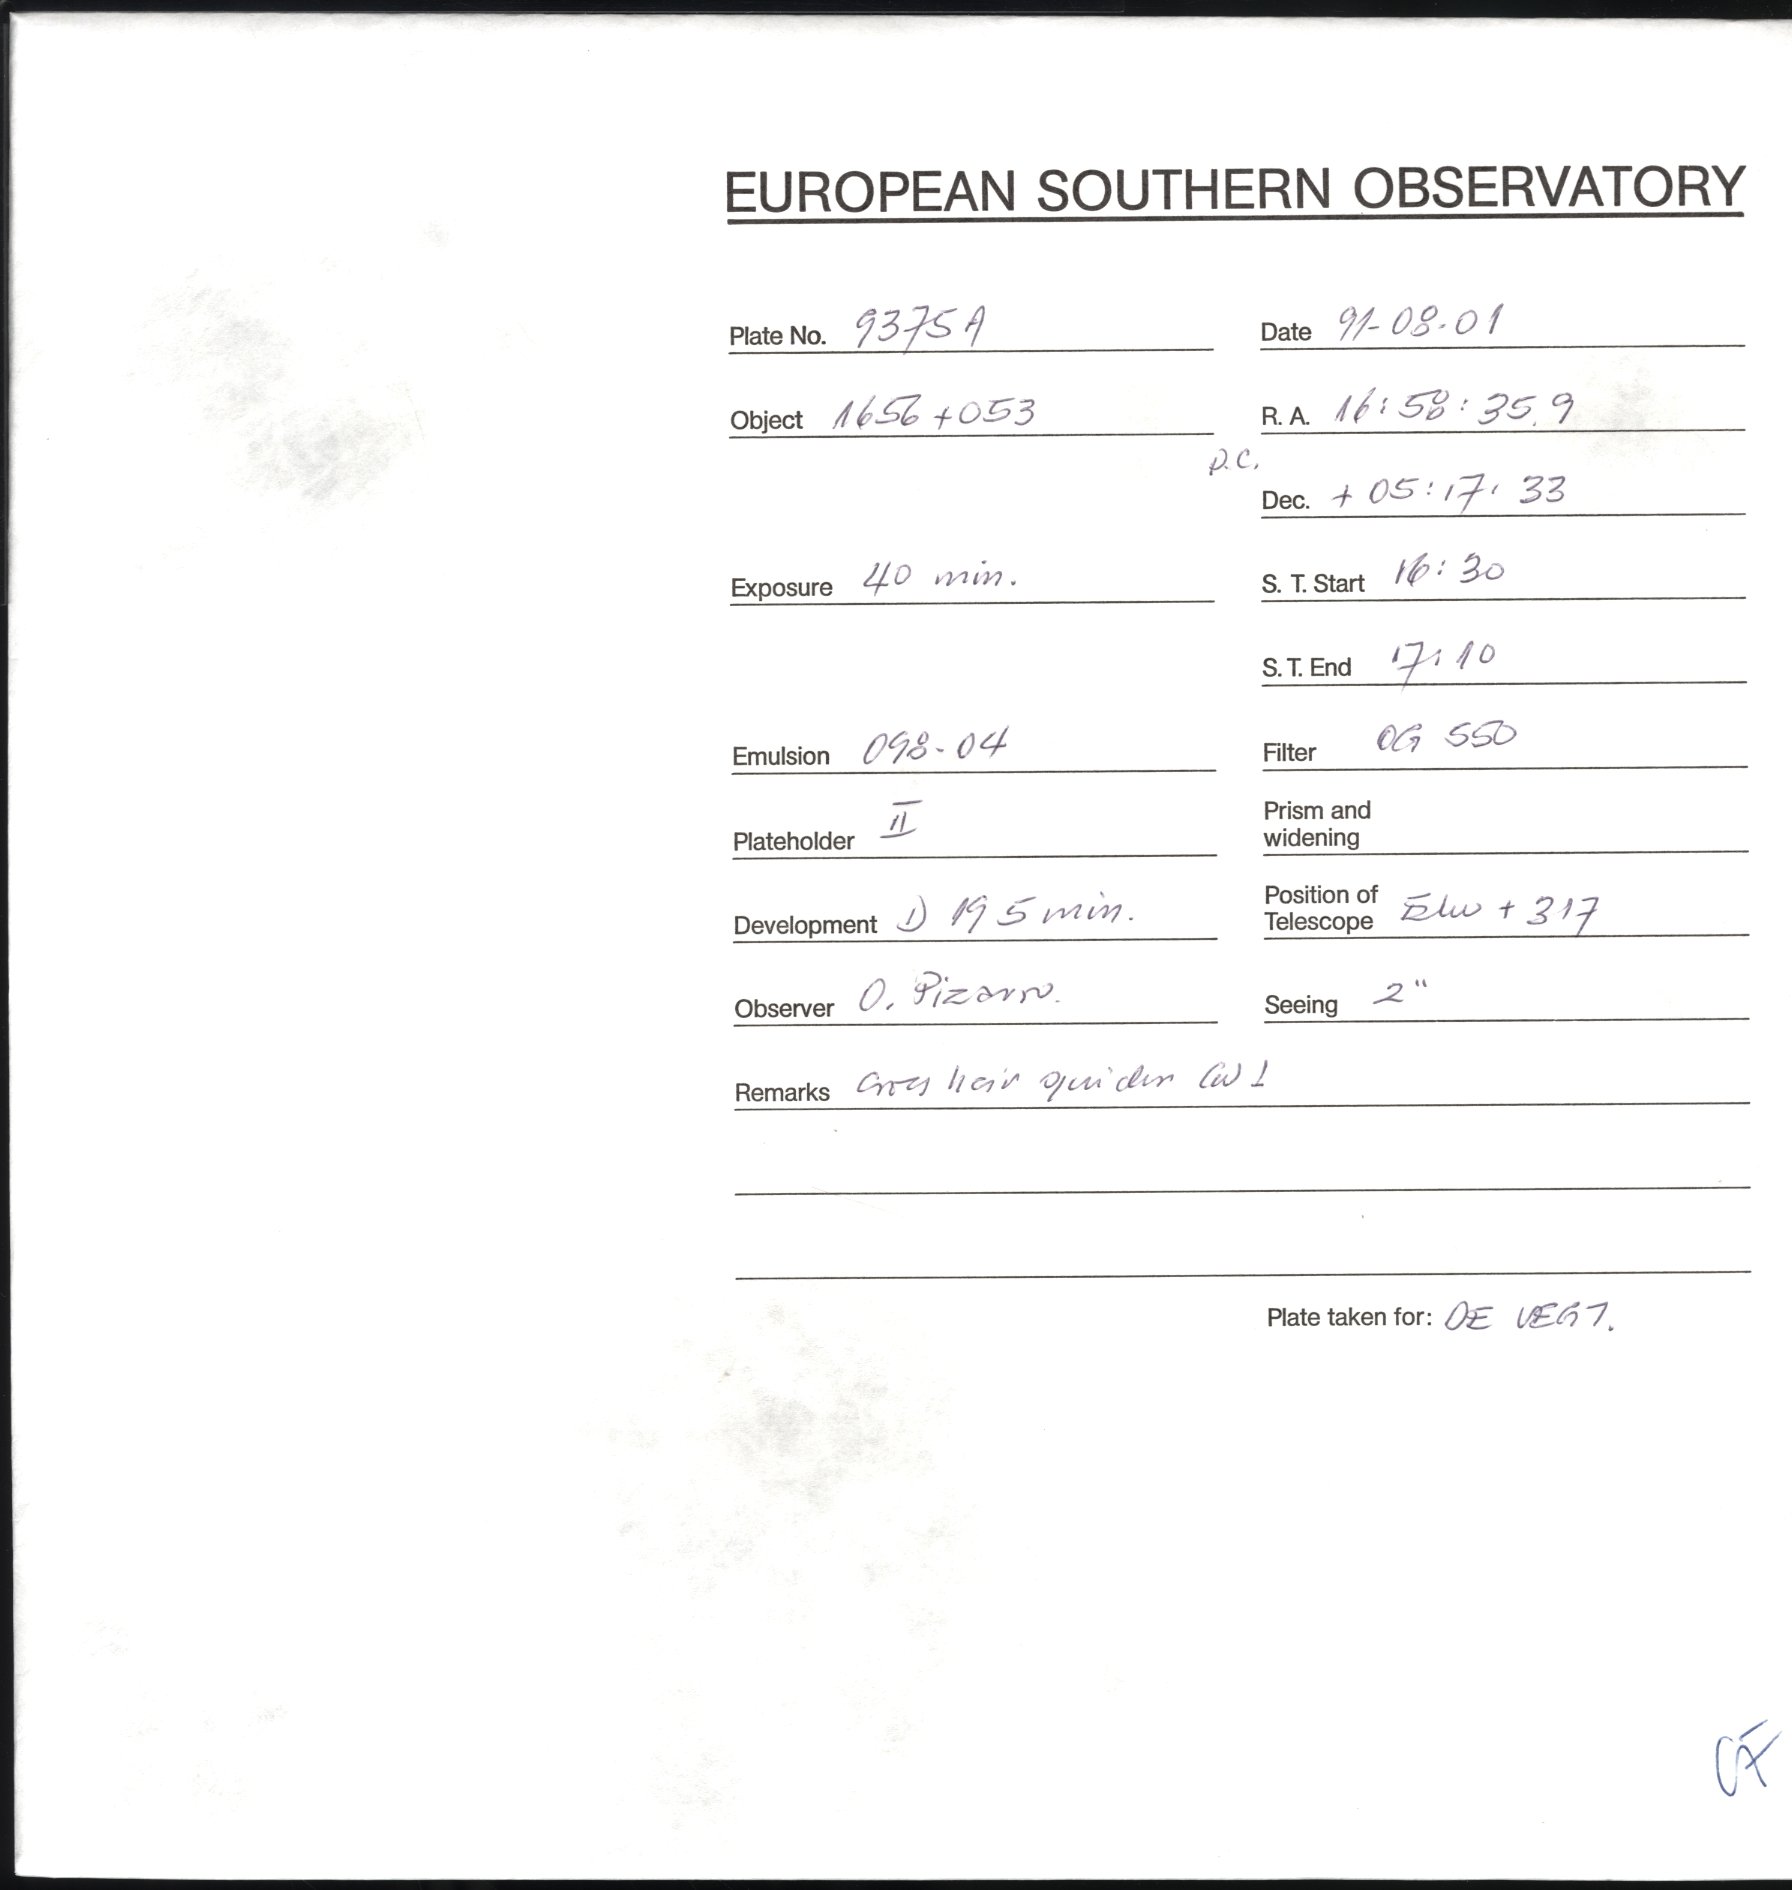 EUROPEAN SOUTHERN OBSERVATORY
Plate No. 9375A Date 91-08-01
Object 1656+053 R. A. 16:58:35.9
P.C.
Dec. + 05:17:33
Exposure 40 min. S. T. Start 16:30
S. T. End 17:10
Emulsion 098-04 Filter OG 550
Plateholder II Prism and
widening
Development 1) 19 5 min. Position of
Telescope + 317
Observer O. Pizarro. Seeing 2"
Remarks hair
Plate taken for: DE VEGT.